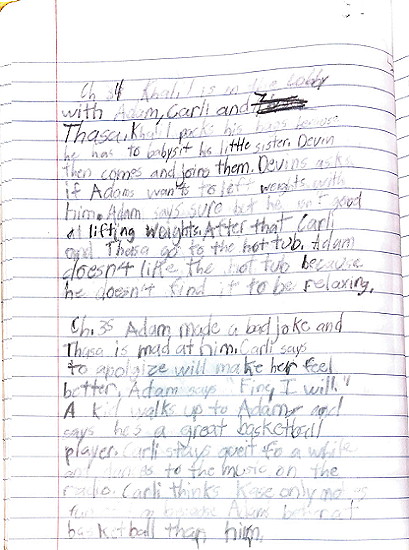 Ch 34 Khalil is in the lobby
with Adam, Carli and
Thasa. Khalil packs his bags because
he has to babysit his little sister. Devin
then comes and joins them. Devins asks
if Adams wants to left weights with
him. Adam says sure but he isn't good
at lifting weights. After that Carli
and Thasa go to the hot tub. Adam
doesn't like the hot tub because
he doesn't find it to be relaxing.
Ch. 35 Adam made a bad joke and
Thasa is mad at him. Carli says
to apolgize will make her feel
better. Adam says "Fine, I will"
A kid walks up to Adam and
says hes a great basketball
player. Carli stays queit fo a while
and dances to the music on the
radio. Carli thinks Kase only
because Adam better at
basketball than him.